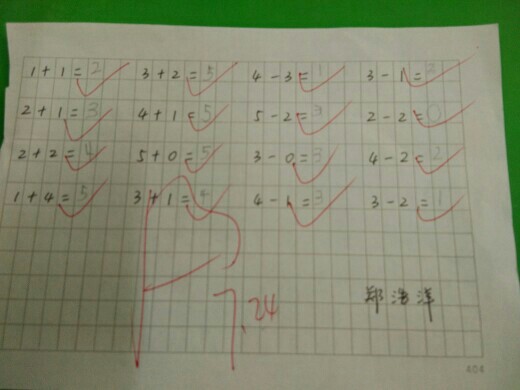 1+1=2 3+2=5 4-3=1 3-1=2
2+1=3 4+1=5 5-2=3 2-2=0
2+2=4 5+0=5 3-0=3 4-2=2
1+4=5 3+1=4 4-1=3 3-2=1
7.24
郑浩洋
404